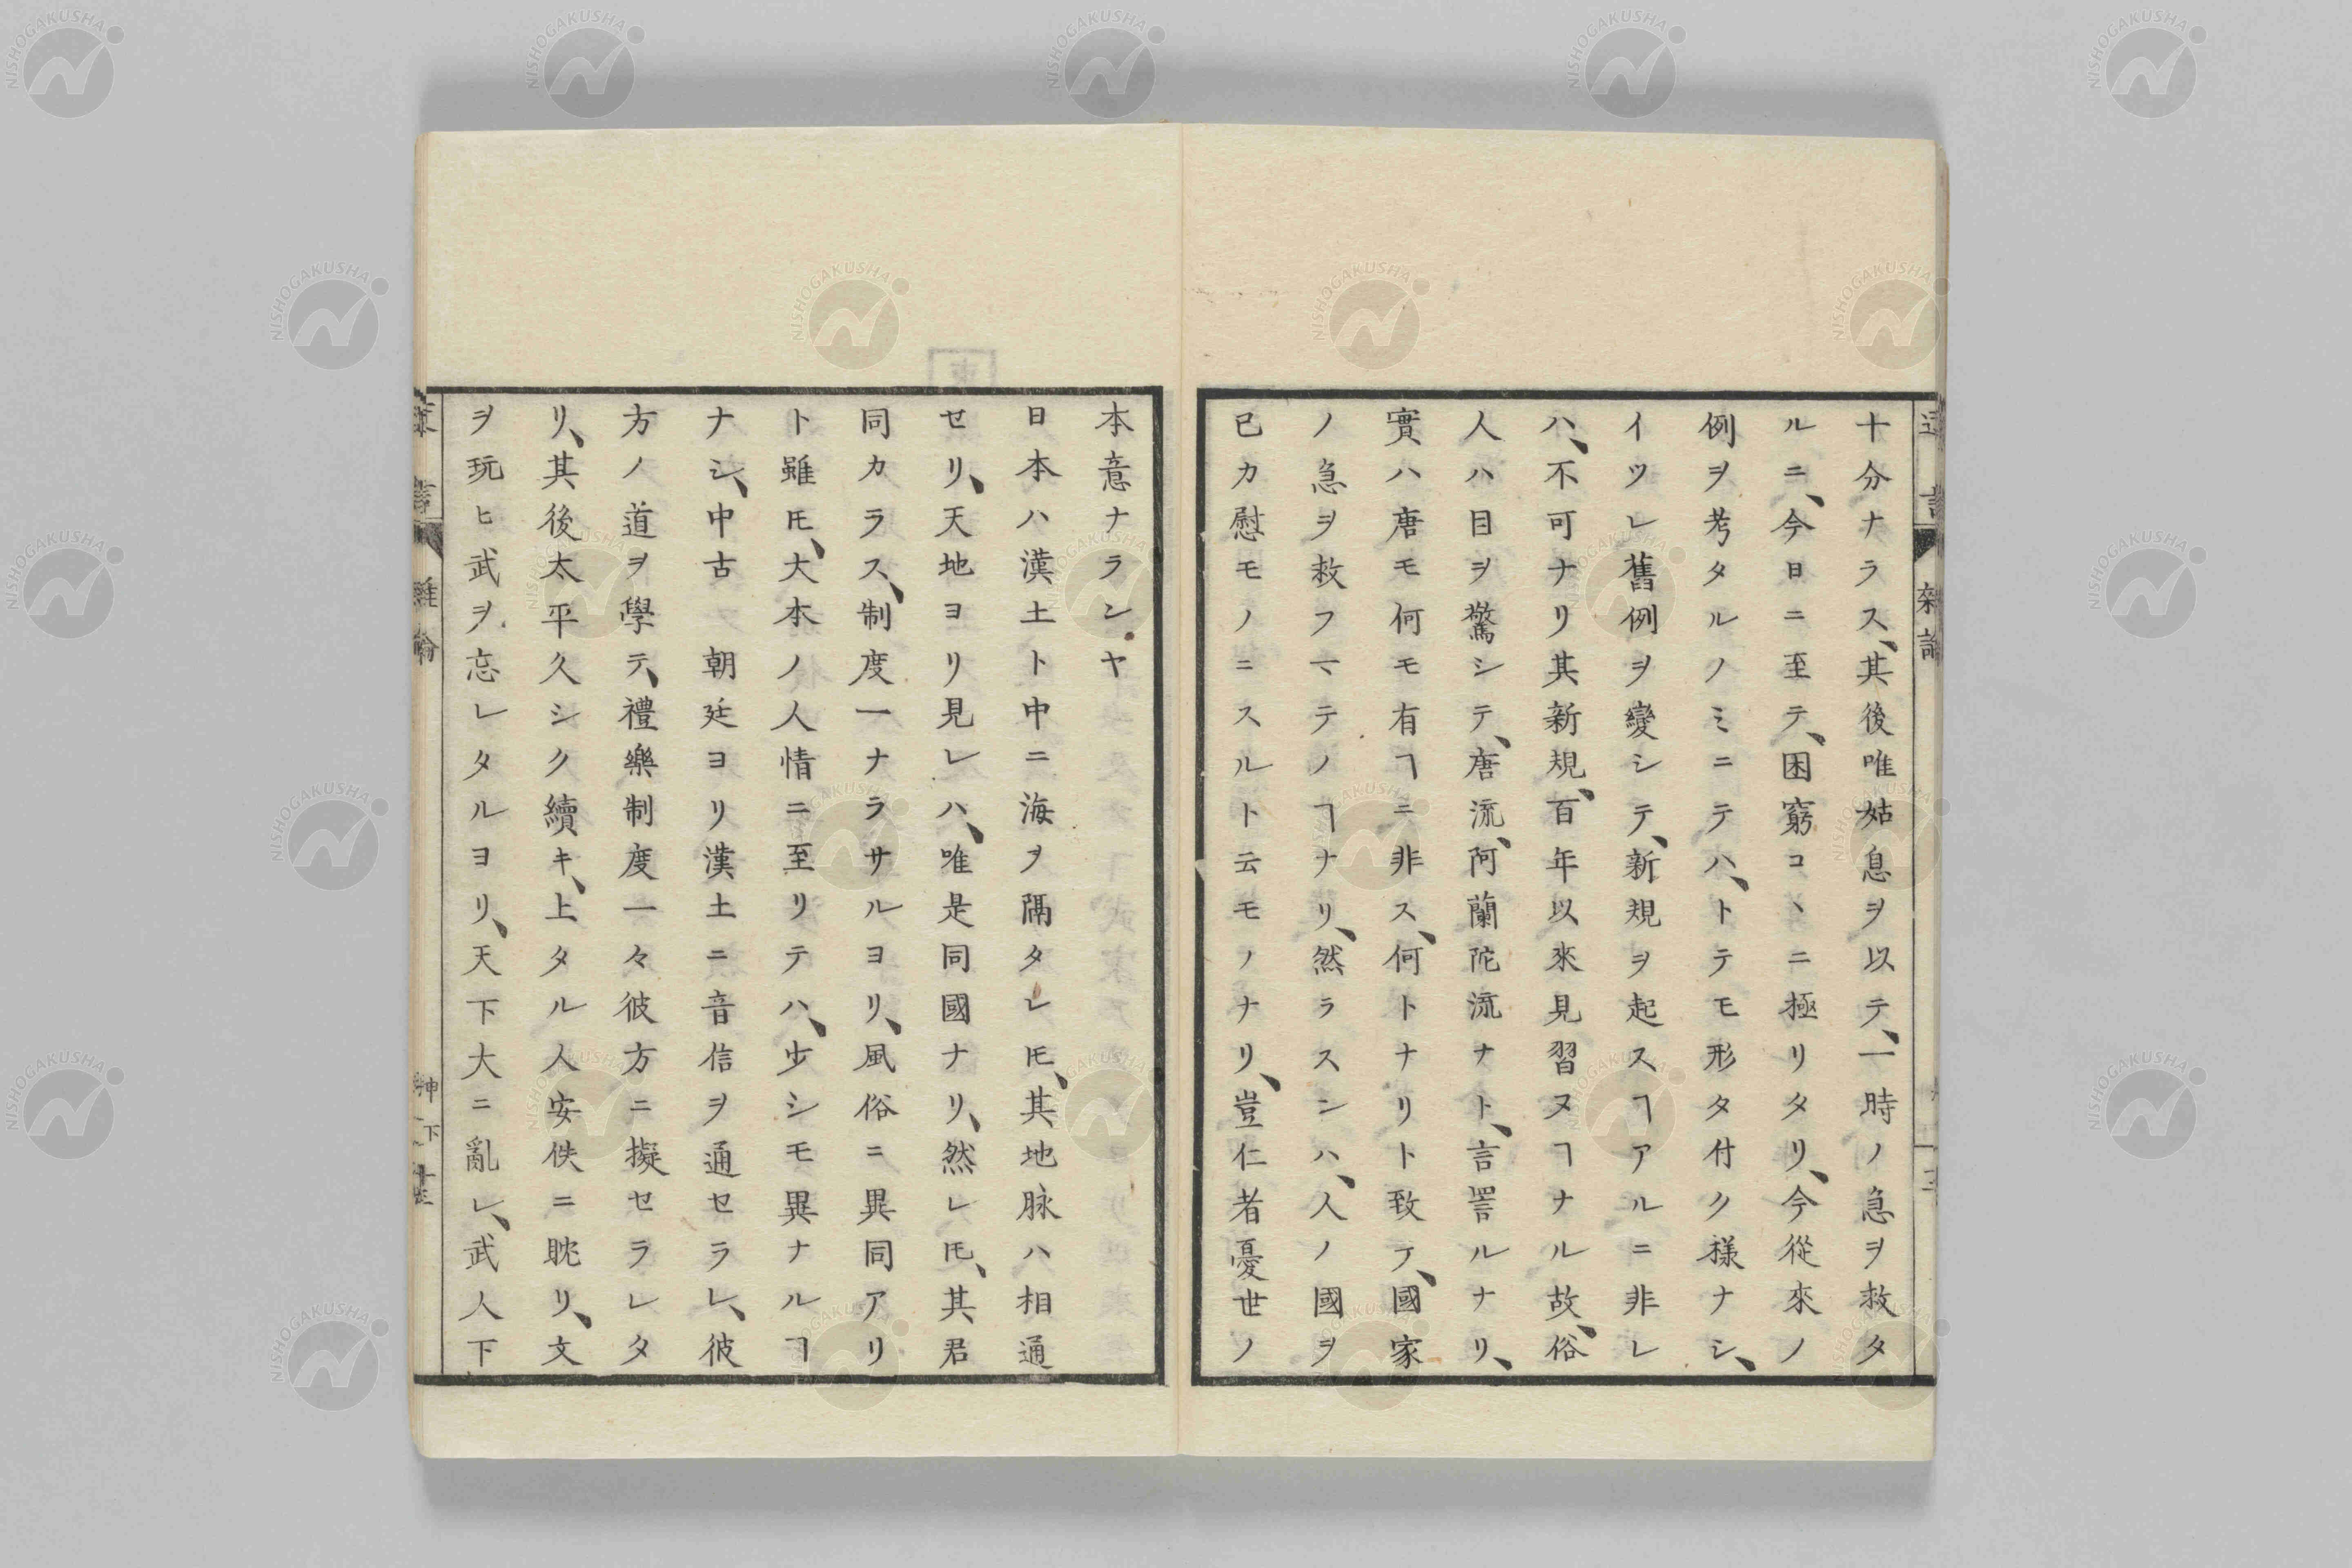 十分ナラス、其後唯姑息ヲ以テ、一時ノ急ヲ救タ
ルニ、今日ニ至テ、困窮コヽニ極リタリ、今從來ノ
例ヲ考タルノミニテハ、トテモ形タ付ク様ナシ、
イツレ舊例ヲ變シテ、新規ヲ起スヿアルニ非レ
ハ、不可ナリ其新規、百年以來見習ヌヿナル故、俗
人ハ目ヲ驚シテ、唐流、阿蘭陀流ナト、言詈ルナリ、
實ハ唐モ何モ有ヿニ非ス、何トナリト致テ、國家
ノ急ヲ救フマテノヿナリ、然ラスンハ、人ノ國ヲ
己カ慰モノニスルト云モノナリ、豈仁者憂世ノ
本意ナランヤ
日本ハ漢土ト中ニ海ヲ隔タレ𪜈、其地脉ハ相通
セリ、天地ヨリ見レハ、唯是同國ナリ、然レ𪜈、其君
同カラス、制度一ナラサルヨリ、風俗ニ異同アリ
ト雖𪜈、大本ノ人情ニ至リテハ、少シモ異ナルヿ
ナシ、中古 朝廷ヨリ漢土ニ音信ヲ通セラレ、彼
方ノ道ヲ學テ、禮樂制度一々彼方ニ擬セラレタ
リ、其後太平久シク續キ、上タル人安佚ニ耽リ、文
ヲ玩ヒ武ヲ忘レタルヨリ、天下大ニ亂レ、武人下
雜論
NISHOGAKUSHA